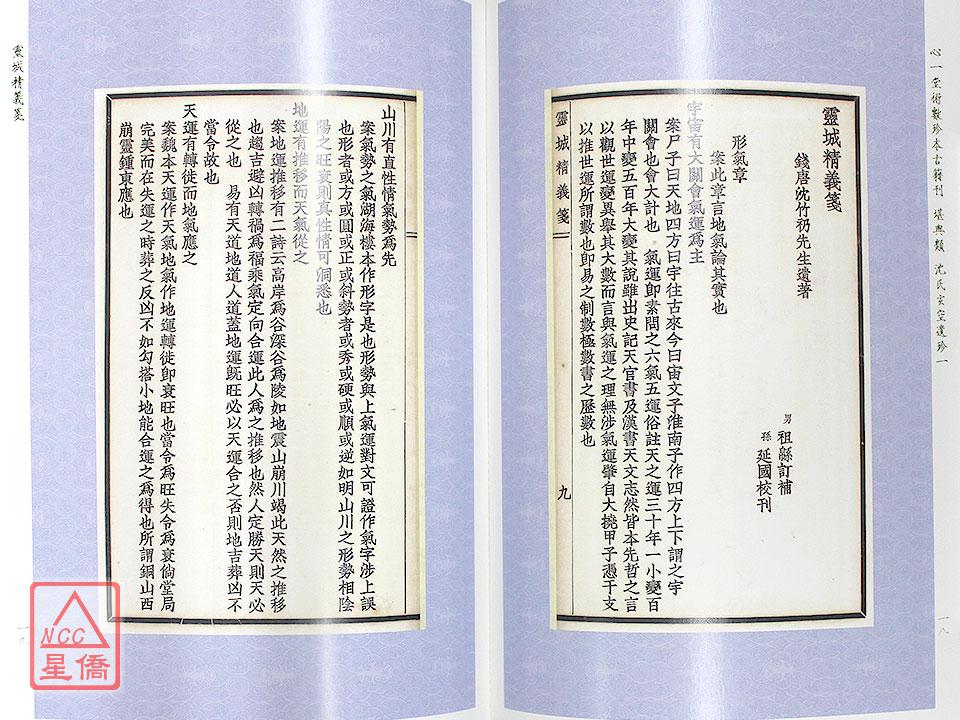 心一堂術數珍本古籍刊 堪輿類 沈氏玄空遺珍一
靈城精義箋
錢唐沈竹礽先生遺著
男 祖緜訂補
孫 延國校刊
形氣章
案此章言地氣論其實也
宇宙有大關會氣運爲主
案尸子曰天地四方曰宇往古來今曰宙文子淮南子作四方上下謂之宇
關會也會大計也 氣運卽素問之六氣五運俗註天之運三十年一小變百
年中變五百年大變其說雖出史記天官書及漢書天文志然皆本先哲之言
以觀世運變異舉其大數而言與氣運之理無涉氣運肇自大撓甲子憑干支
以推世運所謂數也卽易之制數極數書之歷數也
靈城精義箋
九
一八
山川有直性情氣勢爲先
案氣勢之氣湖海樓本作形字是也形勢與上氣運對文可證作氣字涉上誤
也形者或方或圓或正或斜勢者或秀或硬或順或逆如明山川之形勢相陰
陽之旺衰則真性情可洞悉也
地運有推移而天氣從之
案地運推移有二詩云高岸爲谷深谷爲陵如地震山崩川竭此天然之推移
也趨吉避凶轉禍爲福乘氣定向合運此人爲之推移也然人定勝天則天必
從之也 易有天道地道人道蓋地運旣旺必以天運合之否則地吉葬凶不
當令故也
天運有轉徙而地氣應之
案魏本天運作天氣地氣作地運轉徙卽衰旺也當令爲旺失令爲衰倘堂局
完美而在失運之時葬之反凶不如勾搭小地能合運之爲得也所謂銅山西
崩靈鍾東應也
靈城精義箋
NCC
星僑